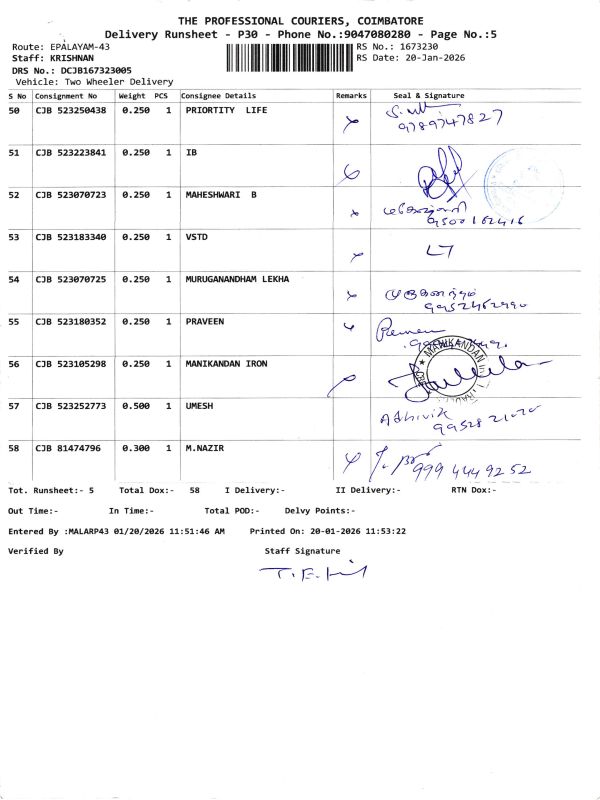 THE PROFESSIONAL COURIERS, COIMBATORE
Delivery Runsheet - P30 - Phone No.:9047080280 - Page No.:5
Route: EPALAYAM-43
RS No.: 1673230
Staff: KRISHNAN
RS Date: 20-Jan-2026
DRS No.: DCJB167323005
Vehicle: Two Wheeler Delivery
S No Consignment No Weight PCS Consignee Details Remarks Seal & Signature
50 CJB 523250438 0.250 1 PRIORTITY LIFE
9789747827
51 CJB 523223841 0.250 1 IB
52 CJB 523070723 0.250 1 MAHESHWARI B
9500162416
53 CJB 523183340 0.250 1 VSTD
54 CJB 523070725 0.250 1 MURUGANANDHAM LEKHA
முருகானந்தம்
9952462990
55 CJB 523180352 0.250 1 PRAVEEN
56 CJB 523105298 0.250 1 MANIKANDAN IRON
MANIKANDAN
57 CJB 523252773 0.500 1 UMESH
Adhivik
58 CJB 81474796 0.300 1 M.NAZIR
999 444 9252
Tot. Runsheet:- 5 Total Dox:- 58 I Delivery:- II Delivery:- RTN Dox:-
Out Time:- In Time:- Total POD:- Delvy Points:-
Entered By :MALARP43 01/20/2026 11:51:46 AM Printed On: 20-01-2026 11:53:22
Verified By Staff Signature